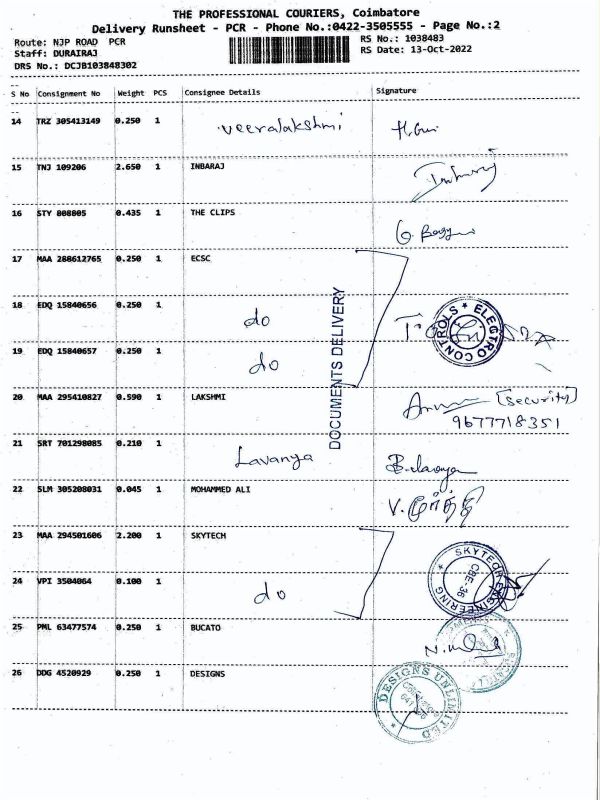 THE PROFESSIONAL COURIERS, Coimbatore
Delivery Runsheet - PCR - Phone No.:0422-3505555 - Page No.:2
Route: NJP ROAD PCR
RS No.: 1038483
Staff: DURAIRAJ
RS Date: 13-Oct-2022
DRS No.: DCJB103848302
S No Consignment No Weight PCS Consignee Details Signature
14 TRZ 305413149 0.250 1 Veeralakshmi
15 TNJ 109206 2.650 1 INBARAJ
16 STY 808805 0.435 1 THE CLIPS
17 MAA 288612765 0.250 1 ECSC
18 EDQ 15840656 0.250 1 do
ELEGTRO CONTROLS
19 EDQ 15840657 0.250 1 do
DOCUMENTS DELIVERY
20 MAA 295410827 0.590 1 LAKSHMI [Security]
9677718351
21 SRT 701298085 0.210 1 Lavanya
22 SLM 305208031 0.045 1 MOHAMMED ALI V. மூர்த்தி
23 MAA 294501606 2.200 1 SKYTECH
SKYTECH ENGINEERING
CBE-36
24 VPI 3504064 0.100 1 do
25 PML 63477574 0.250 1 BUCATO
26 DDG 4520929 0.250 1 DESIGNS
DESIGNS UNLIMITED